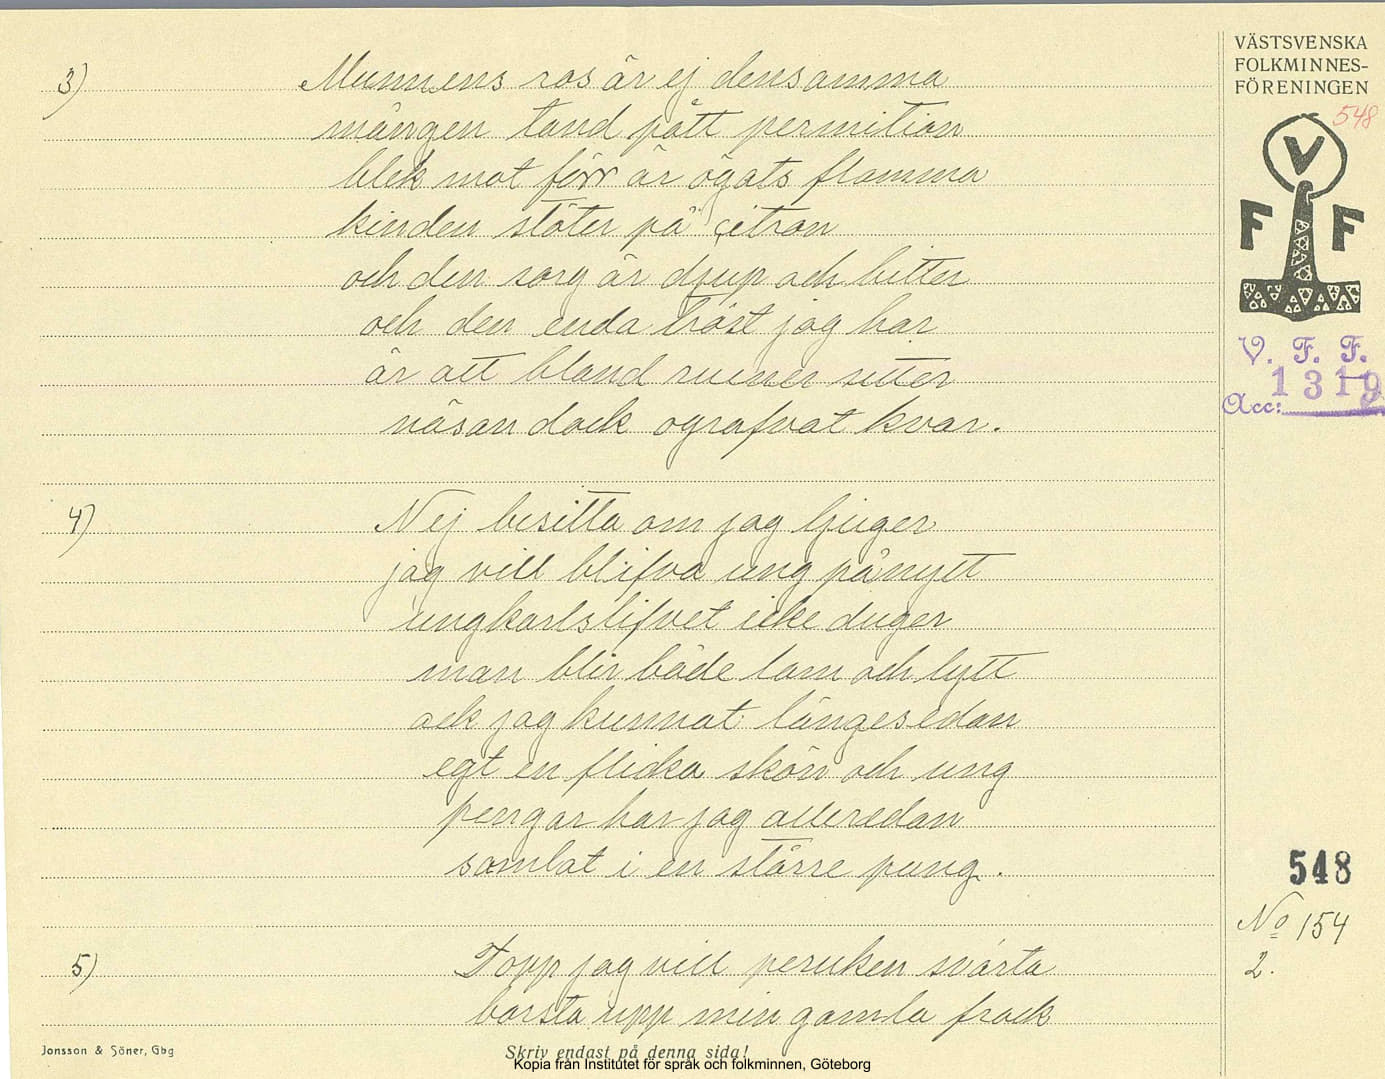 VÄSTSVENSKA
FOLKMINNES-
FÖRENINGEN
548
V
F F
V. F. F.
Acc: 1319
3) Munnens ros är ej densamma
mången tand pått permition
blek mot förr är ögats flamma
kinden stöter på citron
och den sorg är djup och bitter
och den enda tröst jag har
är att bland ruiner sitter
näsan dock ografvat kvar.
4) Nej besitta om jag ljuger
jag vill blifva ung pånytt
ungkarlslifvet icke duger
man blir både lam och lytt
ack jag kunnat längesedan
egt en flicka skön och ung
pengar har jag alleredan
samlat i en större pung.
548
No 154
2.
5) Topp jag vill peruken svärta
borsta upp min gamla frack
Jonsson & Söner, Gbg
Skriv endast på denna sida!
Kopia från Institutet för språk och folkminnen, Göteborg